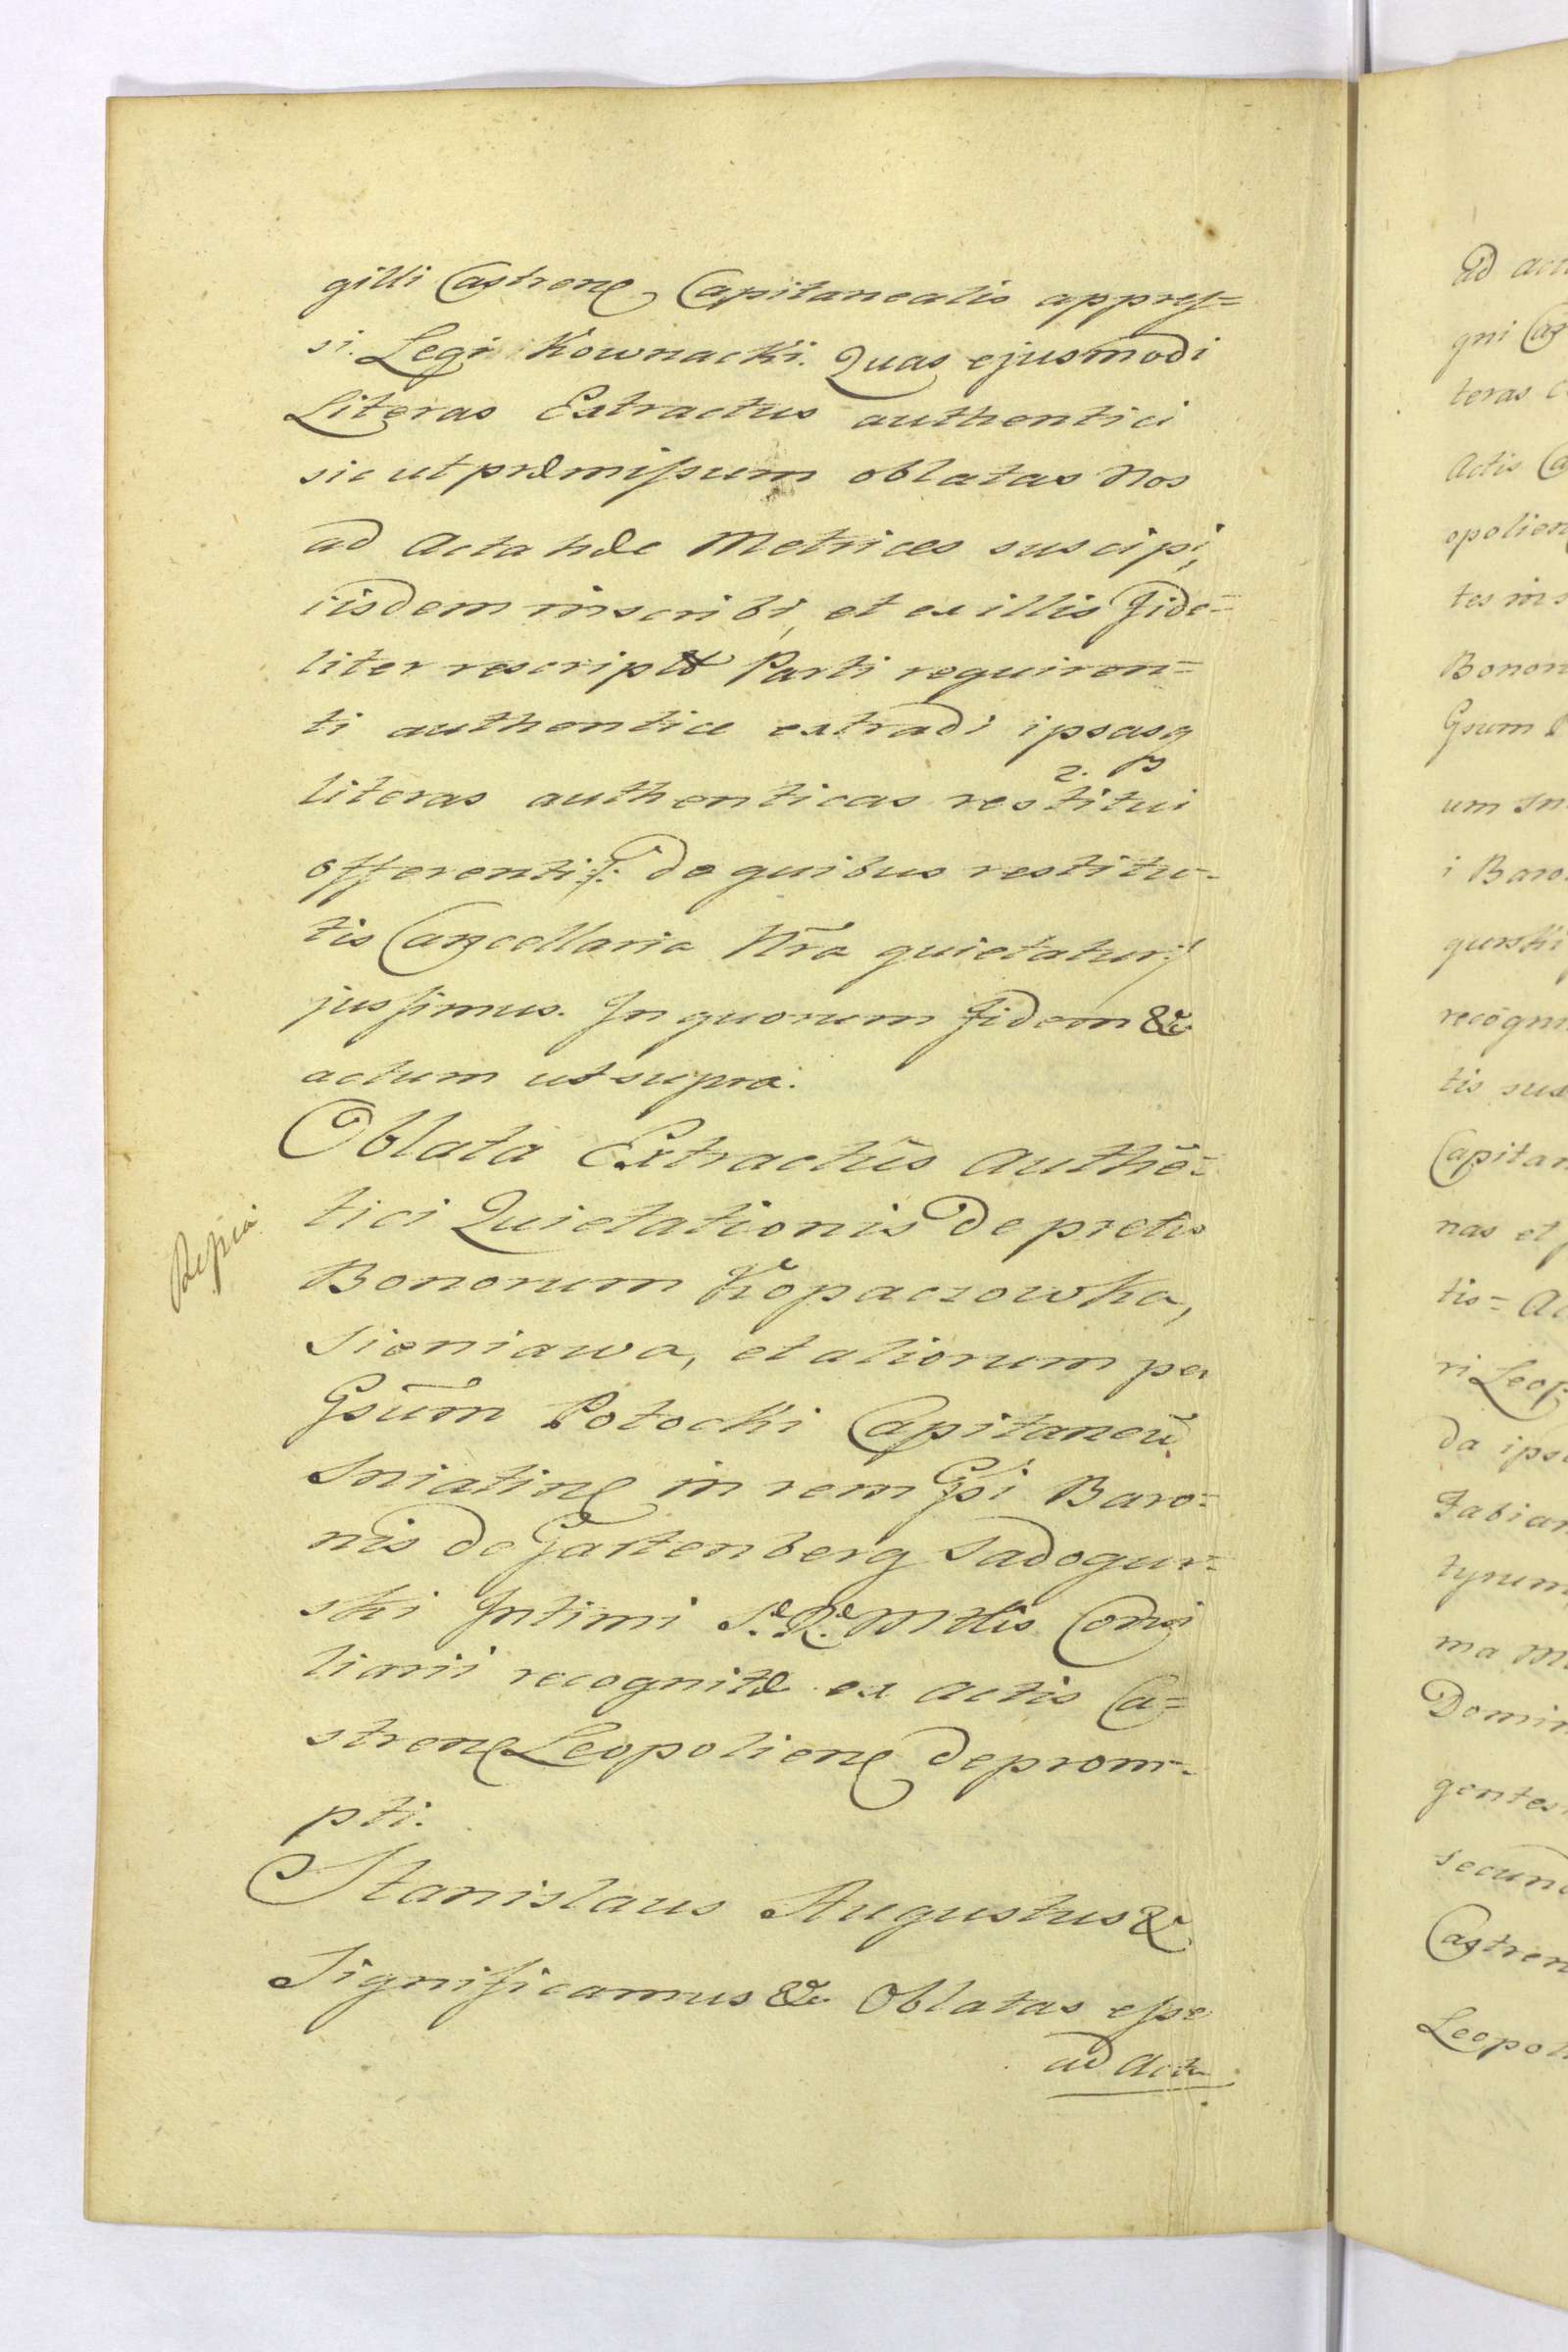 gilli Castrens Capitanealis appres=
si. Legi Kownacki. Quas ejusmodi
Literas Extractus authentici
sic ut præmissum oblatas Nos
ad Acta hæc Metrices suscipi,
iisdem inscribi, et ex illis fide=
liter rescriptæ Parti requiren=
ti authentice extradi ipsasq
literas authenticas restitui
offerenti /: de quibus restitu-
tis Cancellaria Nrã quietatur :/
jussimus. In quorum fidem &c
actum ut supra.
Oblata Extractûs Authẽ=
tici Quietationis de pretio
Bonorum Kopaczowka,
Sieniawa, et aliorum per
Gsũm Potocki Capitaneũ
Sniatinens in rem Gsi Baro=
nis de Gartenberg Sadogur=
ski Intimi S. R. Mttis Consi
liarii recognitæ ex Actis Ca=
strens Leopoliens deprom-
pti.
Stanislaus Augustus &
Significamus &c Oblatas esse
ad Acta
Ad act
gni Cas
teras
Actis Ca
opoliens
tes ins
Bonor
Gsum
um Sn
i Baro
gurski
recogni
tis sua
Capitan
nas et p
tis= Ac
ri Leop
da ipsi
Fabian
tyrum
ma M
Domin
gentes
secund
Castren
Leopol